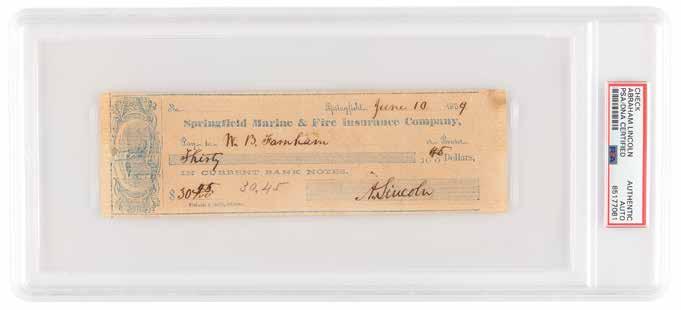 No.
Springfield, June 10 1859
Springfield Marine & Fire Insurance Company,
Pay to W. B. Farnham or Bearer
Thirty 45/100 Dollars,
IN CURRENT BANK NOTES.
$30 45/100 30,45 A. Lincoln
CHECK
ABRAHAM LINCOLN
PSA/DNA CERTIFIED
AUTHENTIC
AUTO
85177081